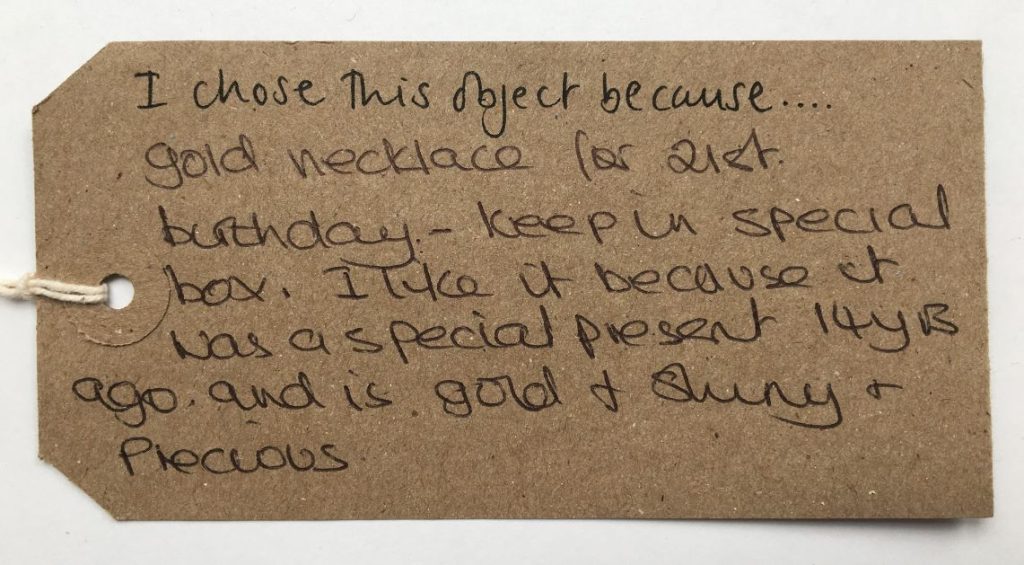 I chose This object because....
gold necklace for 21st.
birthday. - keep in special
box. I like it because it
was a special present 14yrs
ago. and is gold + Shiny +
Precious